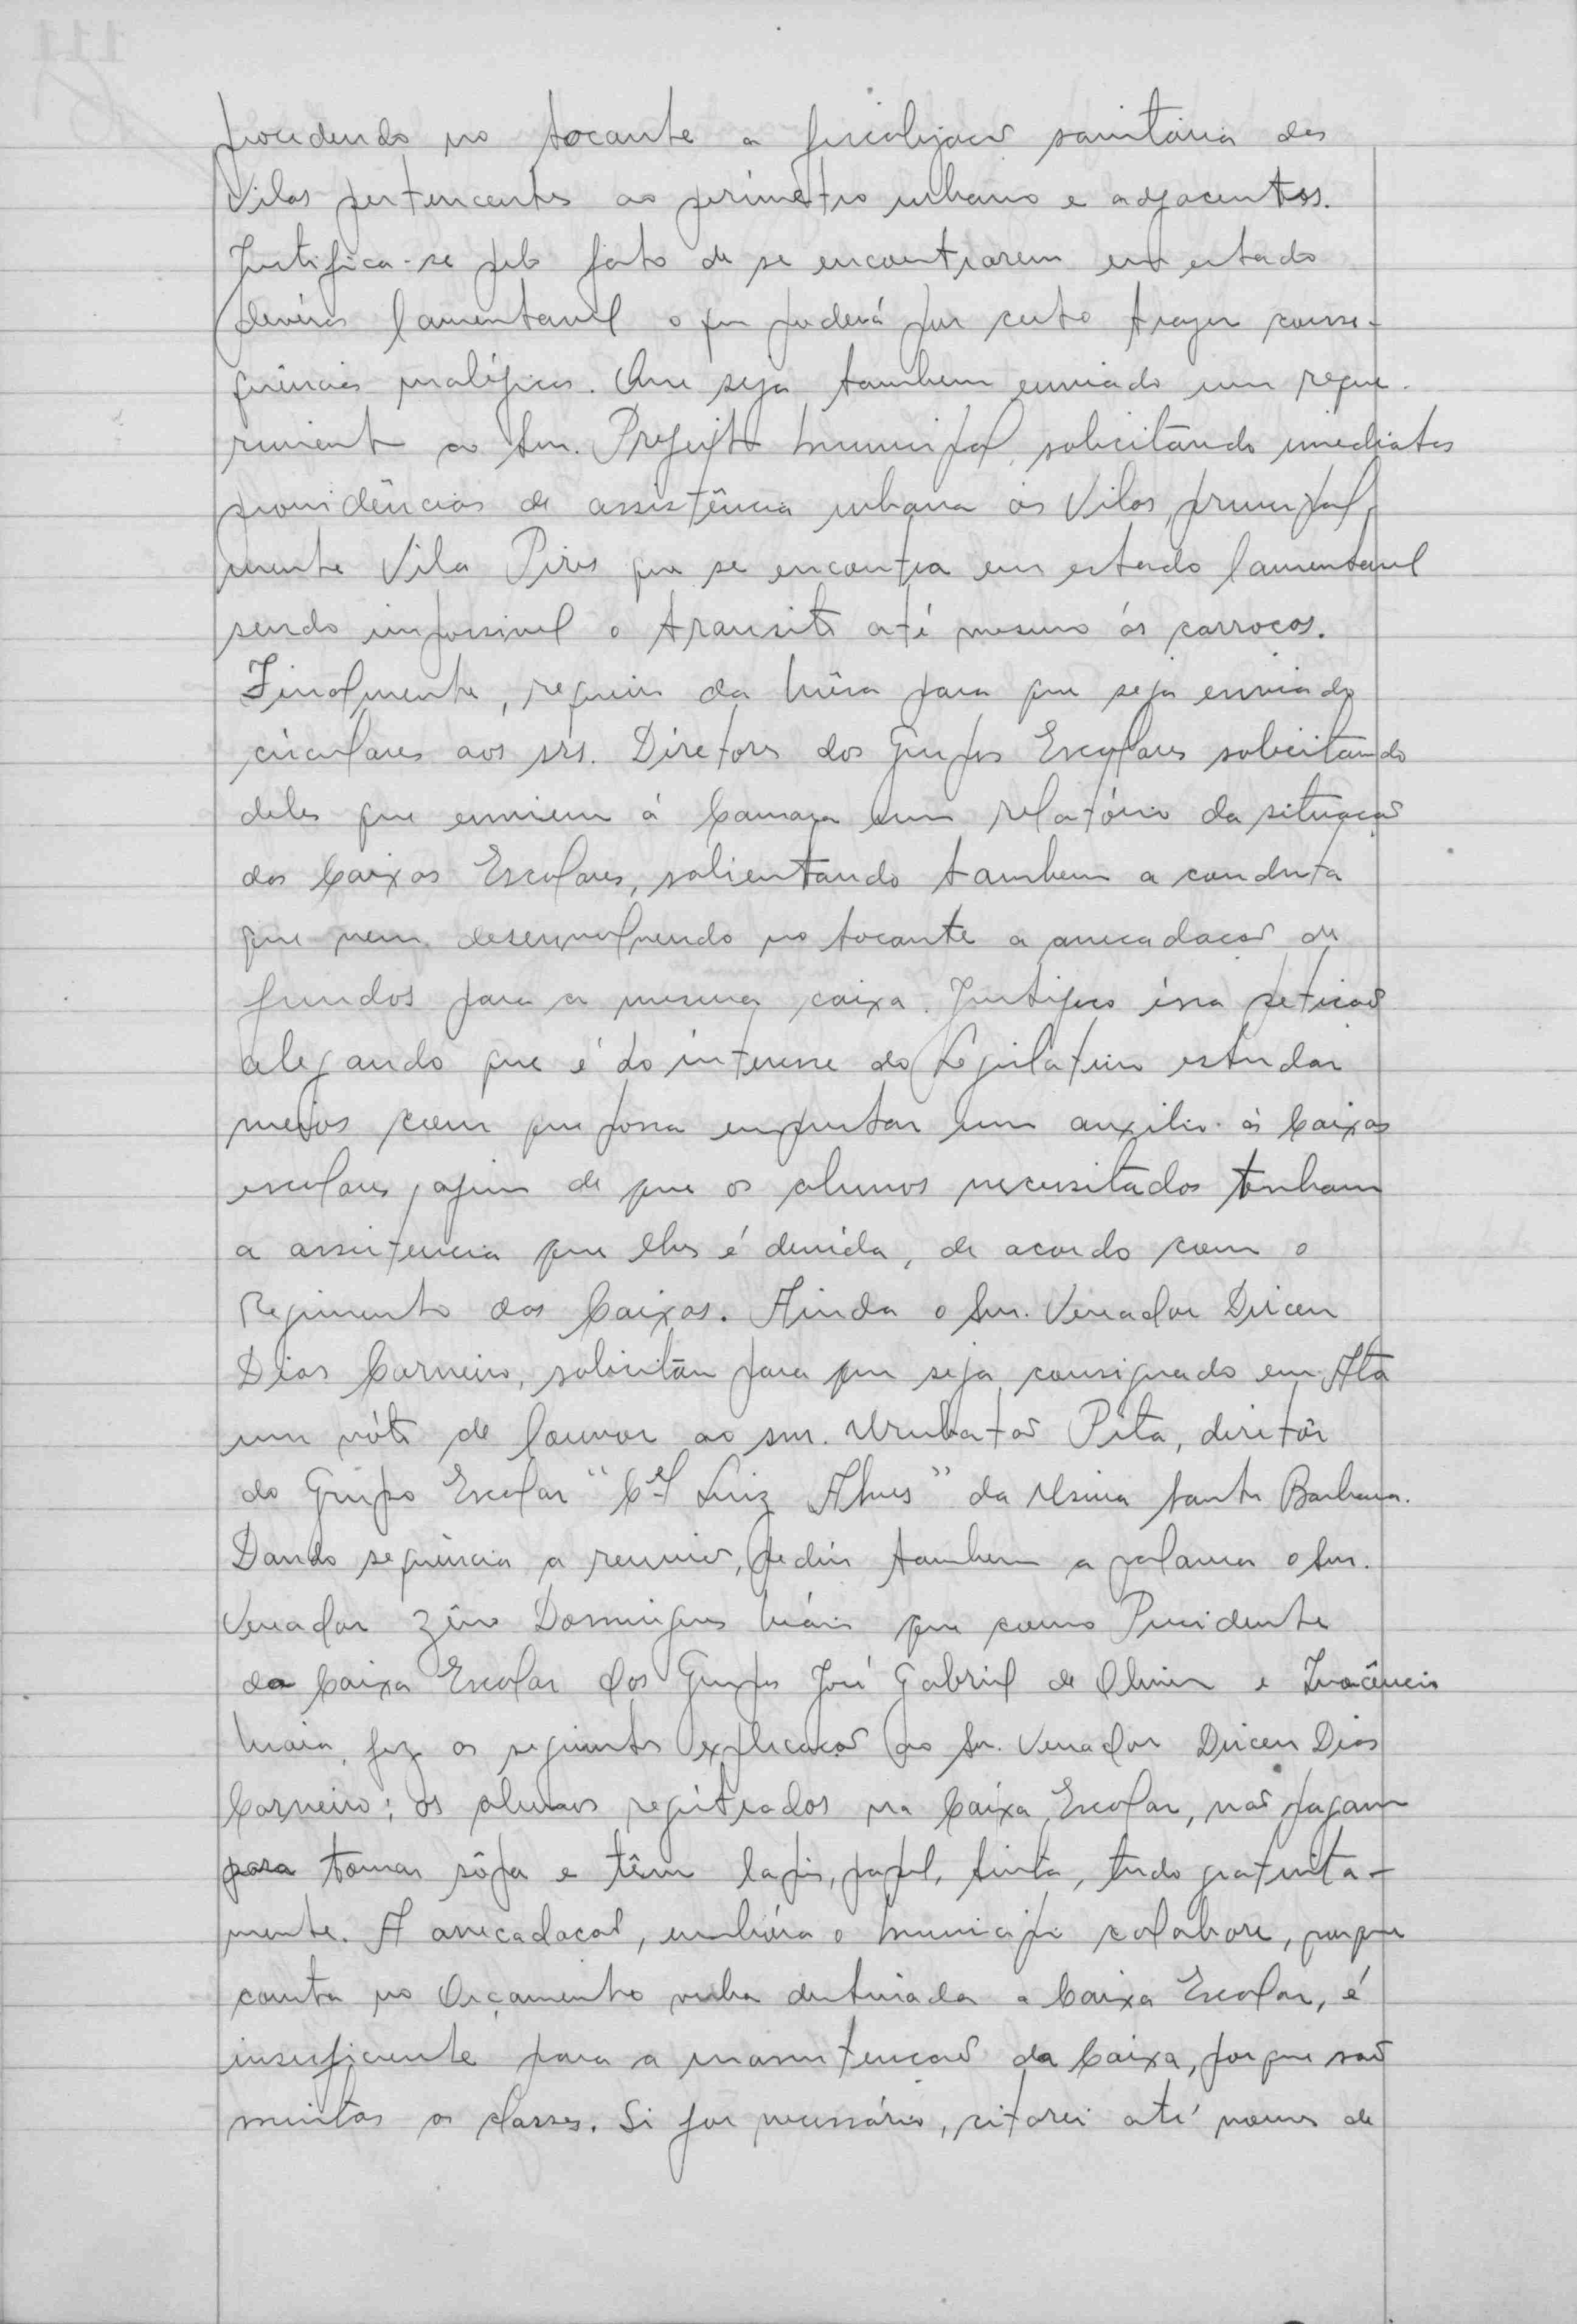 procedendo no tocante a fiscalizacão sanitária das
Vilas pertencentes ao perímetro urbano e adjacentes.
Justifica-se pelo fato de se encontrarem em estado
devéras lamentavel o que poderá por certo trazer conse-
quências maléficas. Que seja tambem enviado um reque-
rimento ao Snr. Prefeito Municipal, solicitando imediatas
providências de assistência urbana ás Vilas, principal-
mente Vila Pires que se encontra em estado lamentavel
sendo impossivel o transito até mesmo ás carroças.
Finalmente, requeiro da Mêsa para que seja enviado
circulares aos srs. Diretores dos Grupos Escolares solicitando
deles que enviem á Camara um relatório da situação
das Caixas Escolares, salientando tambem a conduta
que vem desenvolvendo no tocante a arrecadacão de
fundos para a mesma caixa. Justifico éssa peticão
alegando que é do interesse do Legislativo estudar
meios com que possa emprestar um auxilio ás Caixas
escolares, afim de que os alunos necessitados tenham
a assistencia que lhes é devida, de acordo com o
Regimento das Caixas. Ainda o Snr. Vereador Dirceu
Dias Carneiro, solicitou para que seja consignado em Ata
um vóto de louvor ao snr. Urubatão Pita, diretôr
do Grupo Escolar "Cel Luiz Alves" da Usina Santa Barbara.
Dando sequência a reunião, pediu tambem a palavra o Snr.
Vereador Zêno Domingues Máia que como Presidente
da Caixa Escolar dos Grupos José Gabriel de Oliveira e Inocêncio
Maia, fez as seguintes explicacão ao Sr. Vereador Dirceu Dias
Carneiro: os alunos registrados na Caixa Escolar, não pagam
para tomar sôpa e têm lapis, papel, tinta, tudo gratuita-
mente. A arrecadacão, embóra o Municipio colabore, porque
consta no Orçamento verba destinada a Caixa Escolar, é
insuficiente para a manutencão da Caixa, porque são
muitas as classes. Si for necessário, citarei até nomes de